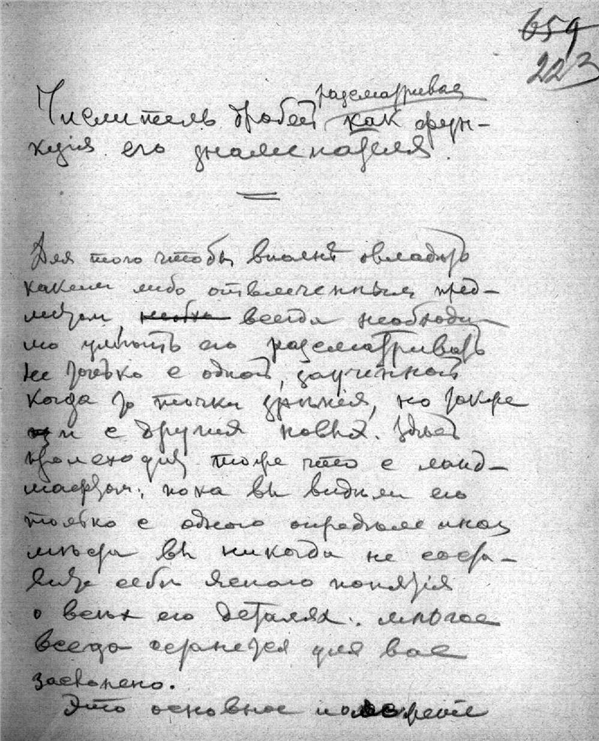 659
223
рассматривая
Числитель дробей как фун-
кція его знаменателя
Для того чтобы вполнѣ овладѣть
каким либо отвлеченным пред-
метом всегда необходи-
мо умѣть его рассматривать
не только с одной, заученной
когда то точки зрѣнія, но также
и с других новых. Здѣсь
происходит тоже что с ланд-
шафтом: пока вы видѣли его
только с одного опредѣленнаго
мѣста вы никогда не соста-
вите себѣ яснаго понятія
о всѣх его деталях: многое
всегда останется для вас
заслонено.
Это основное